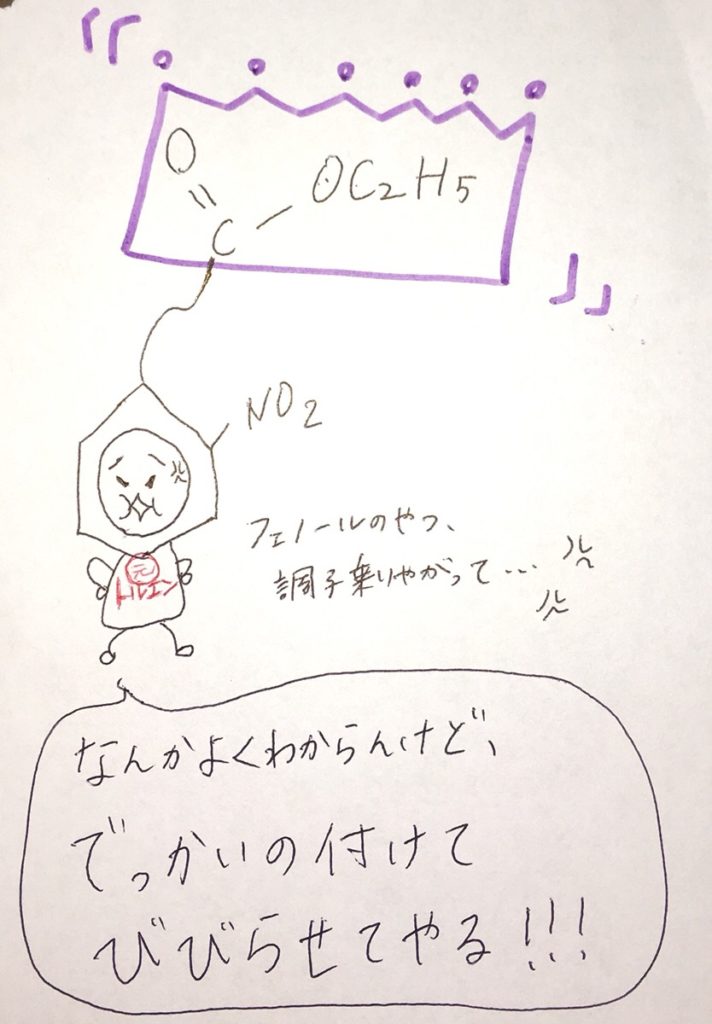 『『
O
OC2H5
C
』』
NO2
フェノールのやつ、
調子乗りやがって…
元
トルエン
なんかよくわからんけど、
でっかいの付けて
びびらせてやる!!!